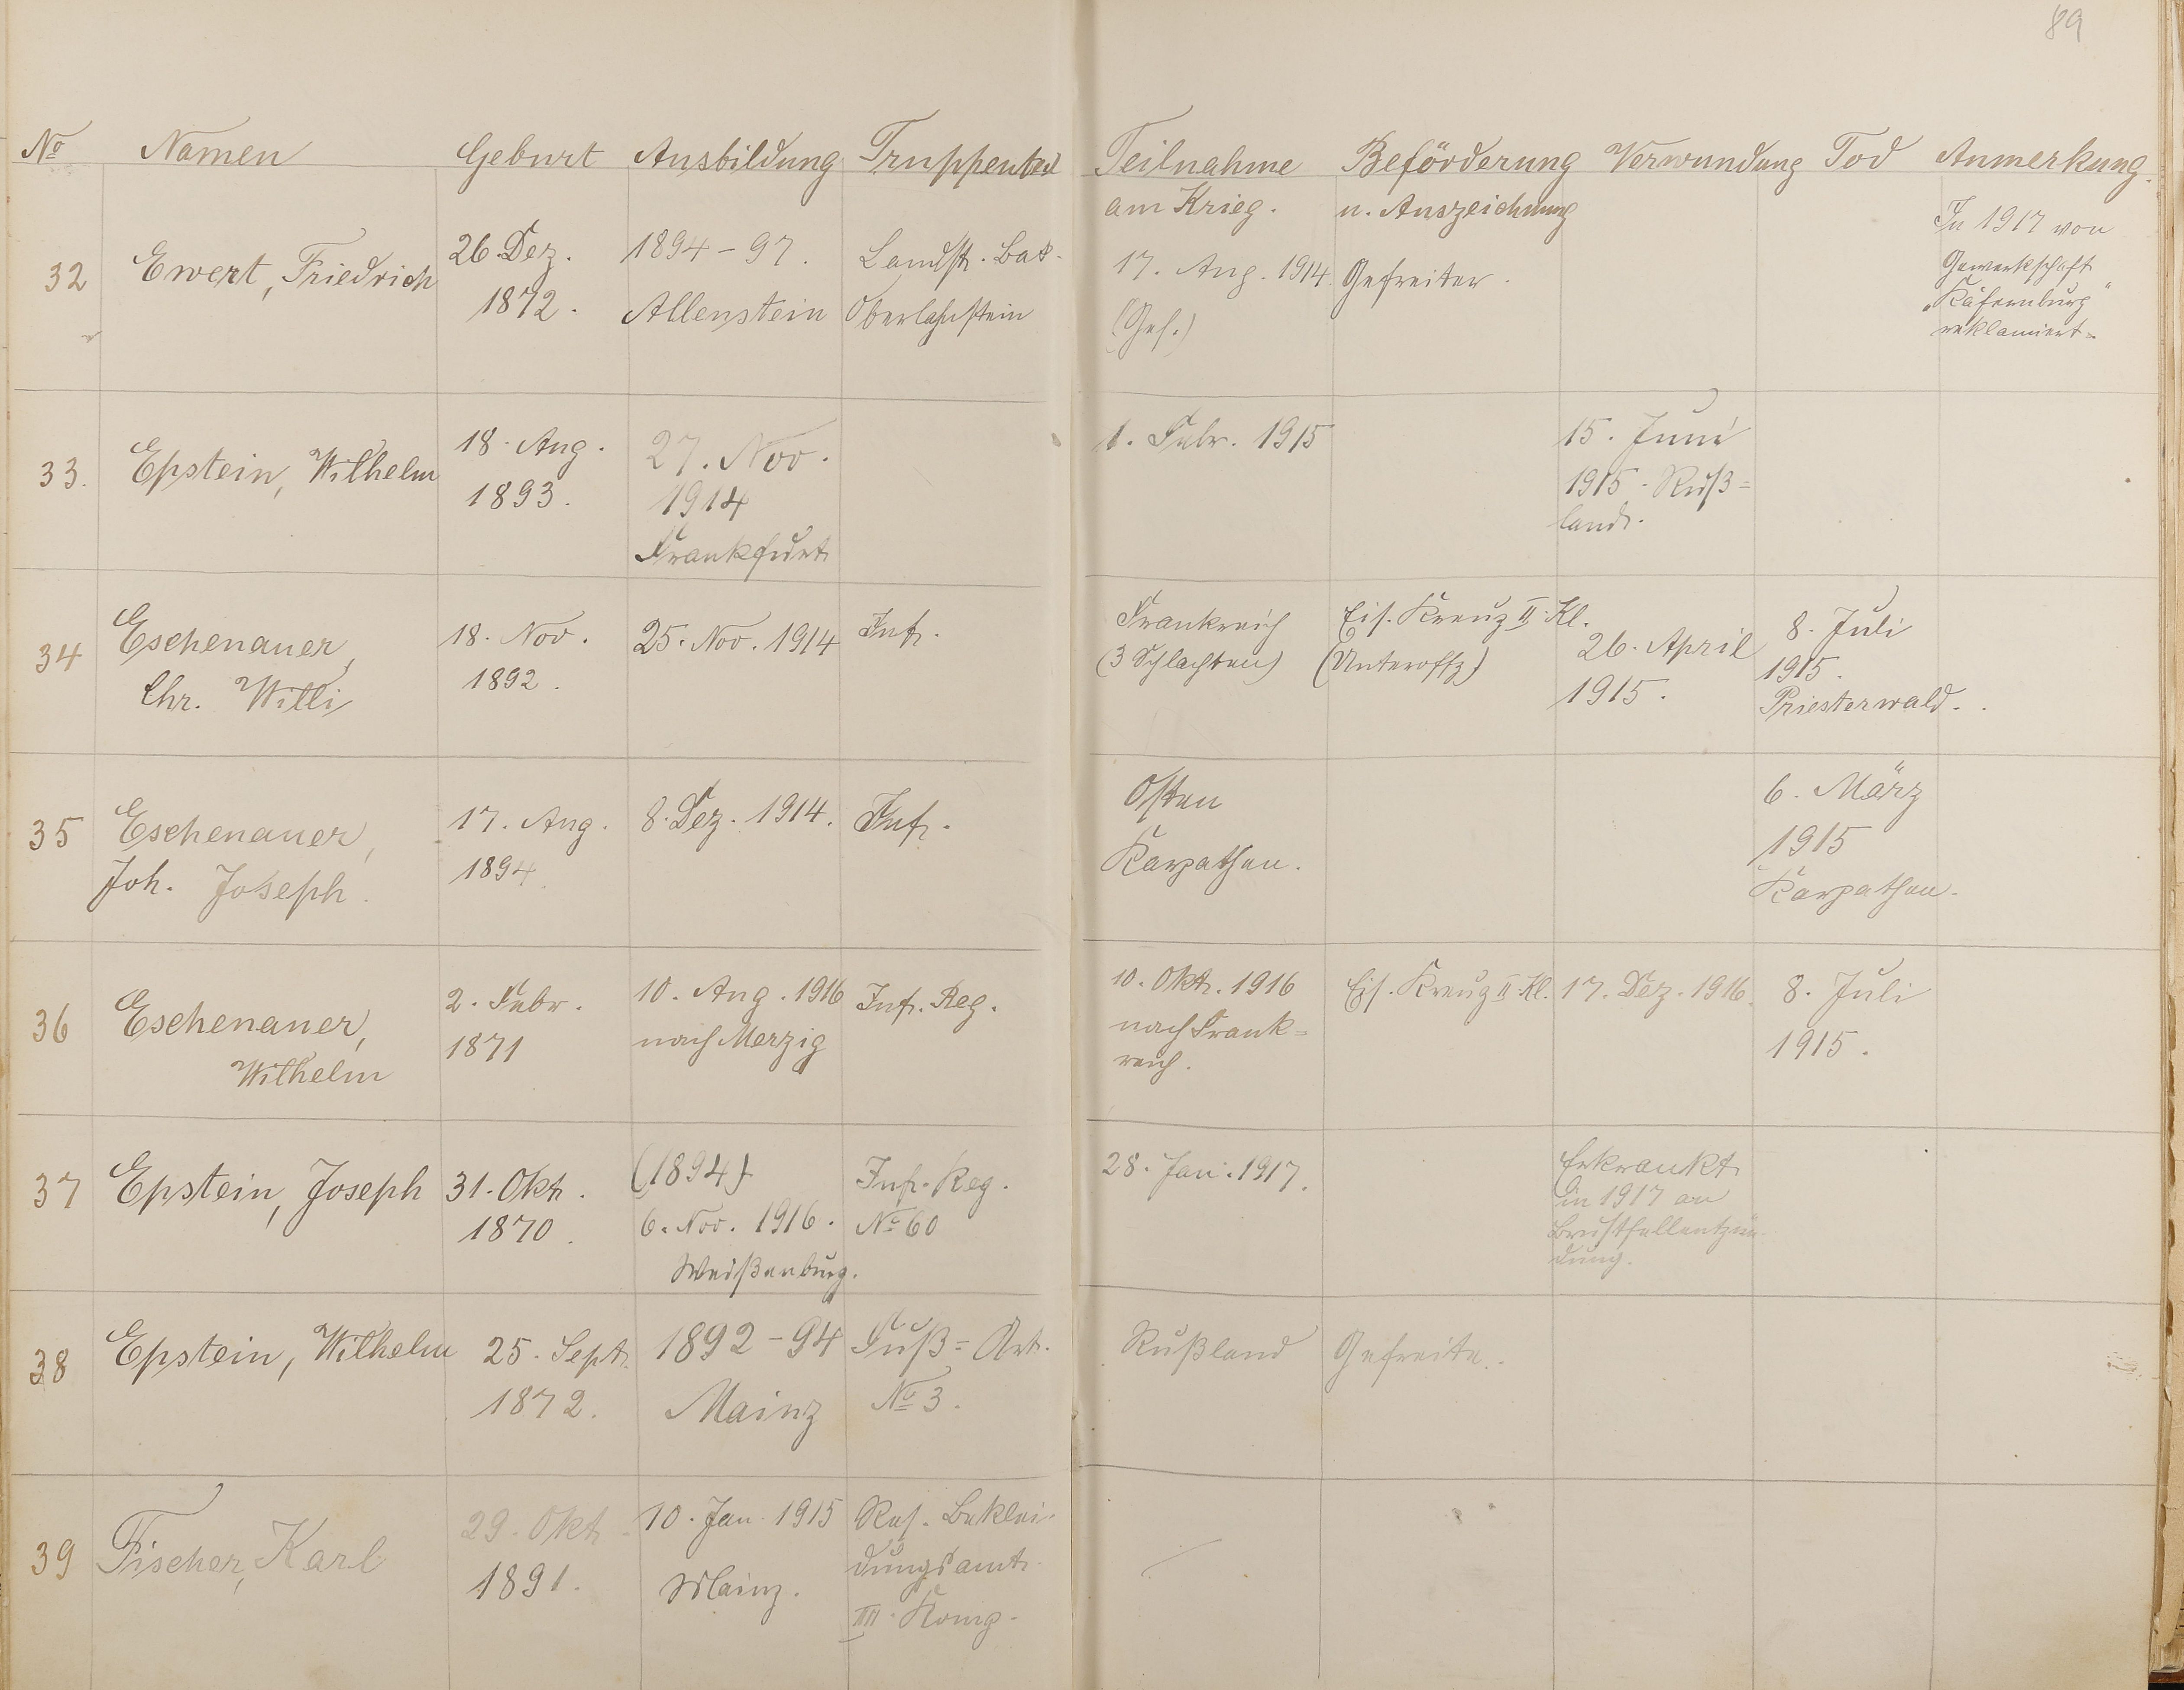 89
No Namen Geburt Ausbildung Truppenteil Teilnahme am Krieg. Beförderung u. Auszeichnung Verwundung Tod Anmerkung.
32 Ewert, Friedrich
26. Dez.
1872.
1894-97.
Allenstein
Landst. Bat.
Oberlahnstein
17. Aug. 1914
(Gef.)
Gefreiter.
In 1917 von
Gewerkschaft
„Käfernburg"
reklamiert.
33. Epstein, Wilhelm
18. Aug.
1893.
27. Nov.
1914
Frankfurt
1. Febr. 1915
15. Juni
1915. Ruß=
land.
34 Eschenauer,
Chr. Willi
18. Nov.
1892.
25. Nov. 1914
Inf.
Frankreich
(3 Schlachten)
Eis. Kreuz II. Kl.
(Unteroffz)
26. April
1915.
8. Juli
1915.
Priesterwald.
35 Eschenauer,
Joh. Joseph.
17. Aug.
1894.
8. Dez. 1914.
Inf.
Osten
Karpathen.
6. März
1915
Karpathen.
36 Eschenauer,
Wilhelm
2. Febr.
1871
10. Aug. 1916
nach Merzig
Inf. Reg.
10. Okt. 1916
nach Frank=
reich.
Eis. Kreuz II. Kl.
17. Dez. 1916.
8. Juli
1915.
37 Epstein, Joseph
31. Okt.
1870.
(1894)
6. Nov. 1916.
Weißenburg.
Inf. Reg.
No 60
28. Jan. 1917.
Erkrankt
in 1917 an
Brustfellentzün-
dung.
38 Epstein, Wilhelm
25. Sept.
1872.
1892-94
Mainz
Fuß=Art.
No 3.
Rußland
Gefreite.
39 Fischer, Karl
29. Okt.
1891.
10. Jan. 1915
Mainz.
Res. Beklei-
dungsamt.
III. Komp.